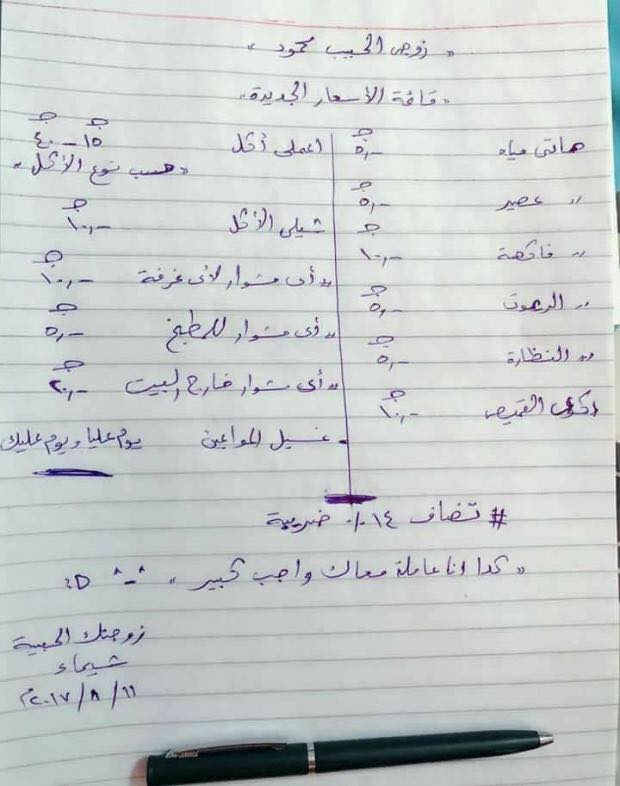 « زوجى الحبيب محمود »
« قائمة الأسعار الجديدة »
هاتى مياه ٥,- جـ
" عصير ٥,- جـ
" فاكهة ١٠,- جـ
" الريموت ٥,- جـ
" النظارة ٥,- جـ
اكوى القميص ١٠,- جـ
اعملى أكل ١٥ جـ - ٤٠ جـ
« حسب نوع الأكل »
شيلى الأكل ١٠,- جـ
" أى مشوار لأى غرفة ١٠,- جـ
" أى مشوار للمطبخ ٥,- جـ
" أى مشوار خارج البيت ٢٠,- جـ
- غسيل المواعين يوم عليا ويوم عليك
# تضاف ١٤٪ ضريبة
« كدا انا عاملة معاك واجب كبير » ^_^ :D
زوجتك الحبيبة
شيماء
١١/٨/٢٠١٧م